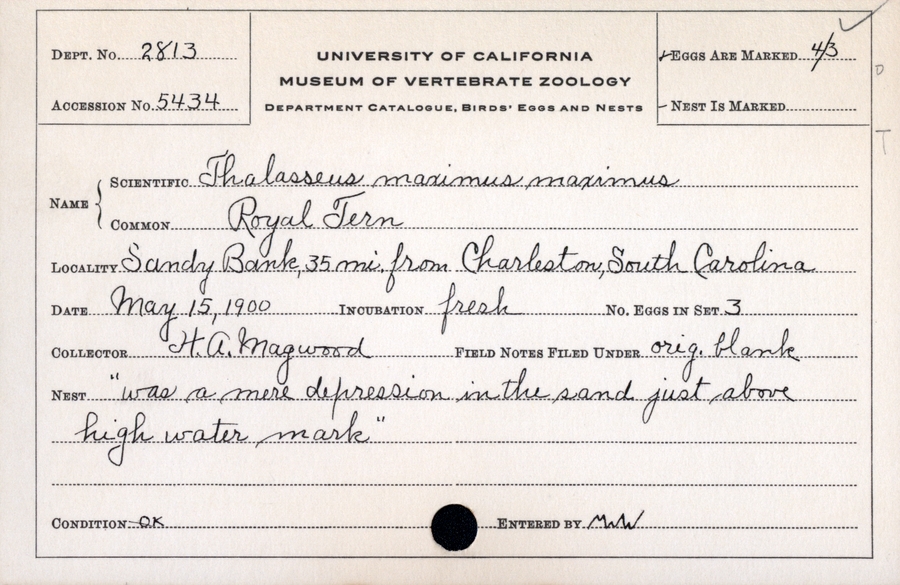 DEPT. No. 2813
ACCESSION No. 5434
UNIVERSITY OF CALIFORNIA
MUSEUM OF VERTEBRATE ZOOLOGY
DEPARTMENT CATALOGUE, BIRDS' EGGS AND NESTS
✓EGGS ARE MARKED 4/3
– NEST IS MARKED
O
T
NAME { SCIENTIFIC Thalasseus maximus maximus
COMMON Royal Tern
LOCALITY Sandy Bank, 35 mi. from Charleston, South Carolina
DATE May 15, 1900 INCUBATION fresh NO. EGGS IN SET 3
COLLECTOR H. A. Magwood FIELD NOTES FILED UNDER orig. blank
NEST "was a mere depression in the sand just above
high water mark"
CONDITION OK ENTERED BY